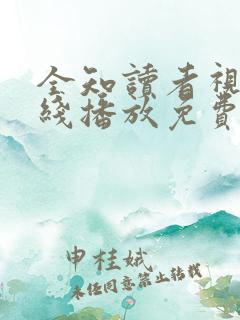 全知讀者視
綫播放免費
申桂娥
未经同意禁止转载